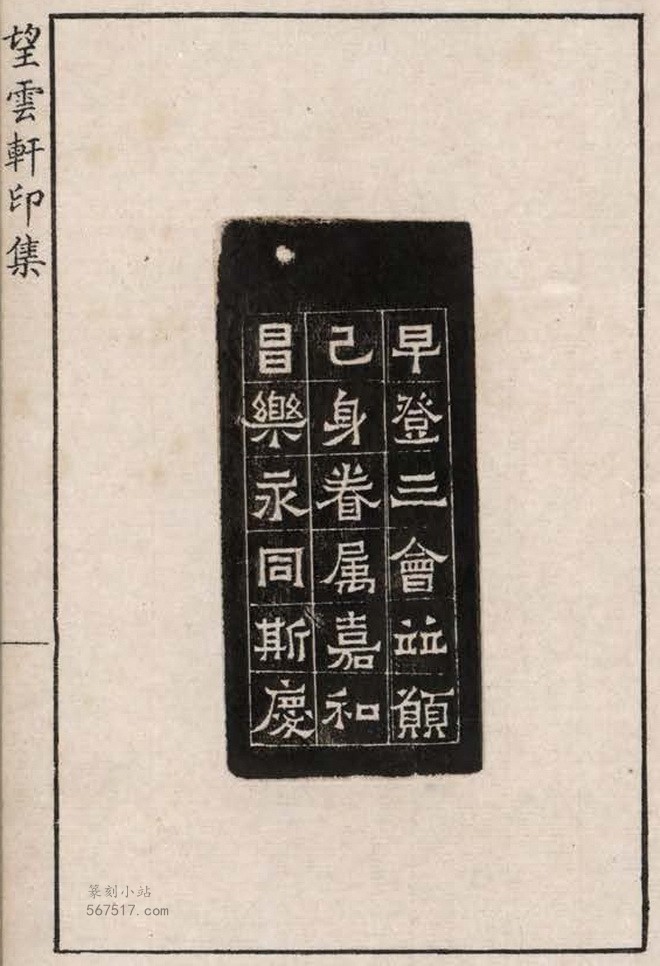 望雲軒印集
早登三會並願
己身眷属嘉和
昌樂永同斯慶
篆刻小站
567517.com